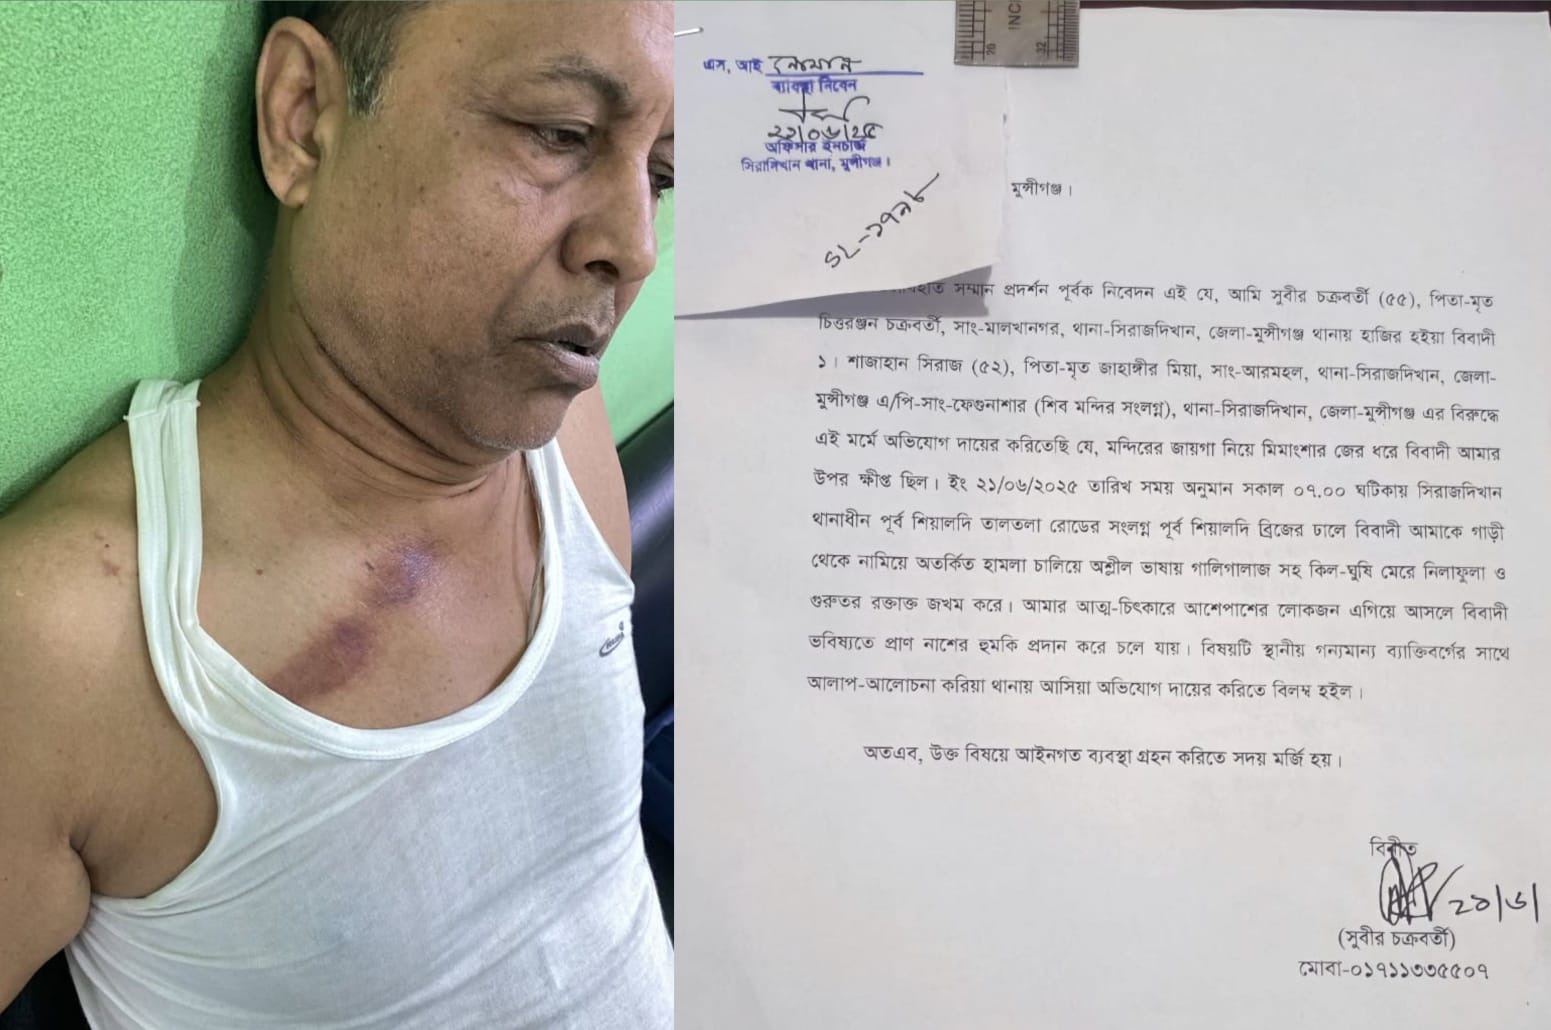 INC
২৮
৩২
এস, আই নোমান
ব্যবস্থা নিবেন
২১/০৬/২৫
অফিসার ইনচার্জ
সিরাজদিখান থানা, মুন্সীগঞ্জ।
SL-১৭৯৮
মুন্সীগঞ্জ।
সম্মান প্রদর্শন পূর্বক নিবেদন এই যে, আমি সুবীর চক্রবর্তী (৫৫), পিতা-মৃত
চিত্তরঞ্জন চক্রবর্তী, সাং-মালখানগর, থানা-সিরাজদিখান, জেলা-মুন্সীগঞ্জ থানায় হাজির হইয়া বিবাদী
১। শাজাহান সিরাজ (৫২), পিতা-মৃত জাহাঙ্গীর মিয়া, সাং-আরমহল, থানা-সিরাজদিখান, জেলা-
মুন্সীগঞ্জ এ/পি-সাং-ফেগুনাশার (শিব মন্দির সংলগ্ন), থানা-সিরাজদিখান, জেলা-মুন্সীগঞ্জ এর বিরুদ্ধে
এই মর্মে অভিযোগ দায়ের করিতেছি যে, মন্দিরের জায়গা নিয়ে মিমাংশার জের ধরে বিবাদী আমার
উপর ক্ষীপ্ত ছিল। ইং ২১/০৬/২০২৫ তারিখ সময় অনুমান সকাল ০৭.০০ ঘটিকায় সিরাজদিখান
থানাধীন পূর্ব শিয়ালদি তালতলা রোডের সংলগ্ন পূর্ব শিয়ালদি ব্রিজের ঢালে বিবাদী আমাকে গাড়ী
থেকে নামিয়ে অতর্কিত হামলা চালিয়ে অশ্লীল ভাষায় গালিগালাজ সহ কিল-ঘুষি মেরে নিলাফুলা ও
গুরুতর রক্তাক্ত জখম করে। আমার আত্ম-চিৎকারে আশেপাশের লোকজন এগিয়ে আসলে বিবাদী
ভবিষ্যতে প্রাণ নাশের হুমকি প্রদান করে চলে যায়। বিষয়টি স্থানীয় গন্যমান্য ব্যাক্তিবর্গের সাথে
আলাপ-আলোচনা করিয়া থানায় আসিয়া অভিযোগ দায়ের করিতে বিলম্ব হইল।
অতএব, উক্ত বিষয়ে আইনগত ব্যবস্থা গ্রহন করিতে সদয় মর্জি হয়।
বিনীত
২১/৬/
(সুবীর চক্রবর্তী)
মোবা-০১৭১১৩৩৫৫০৭